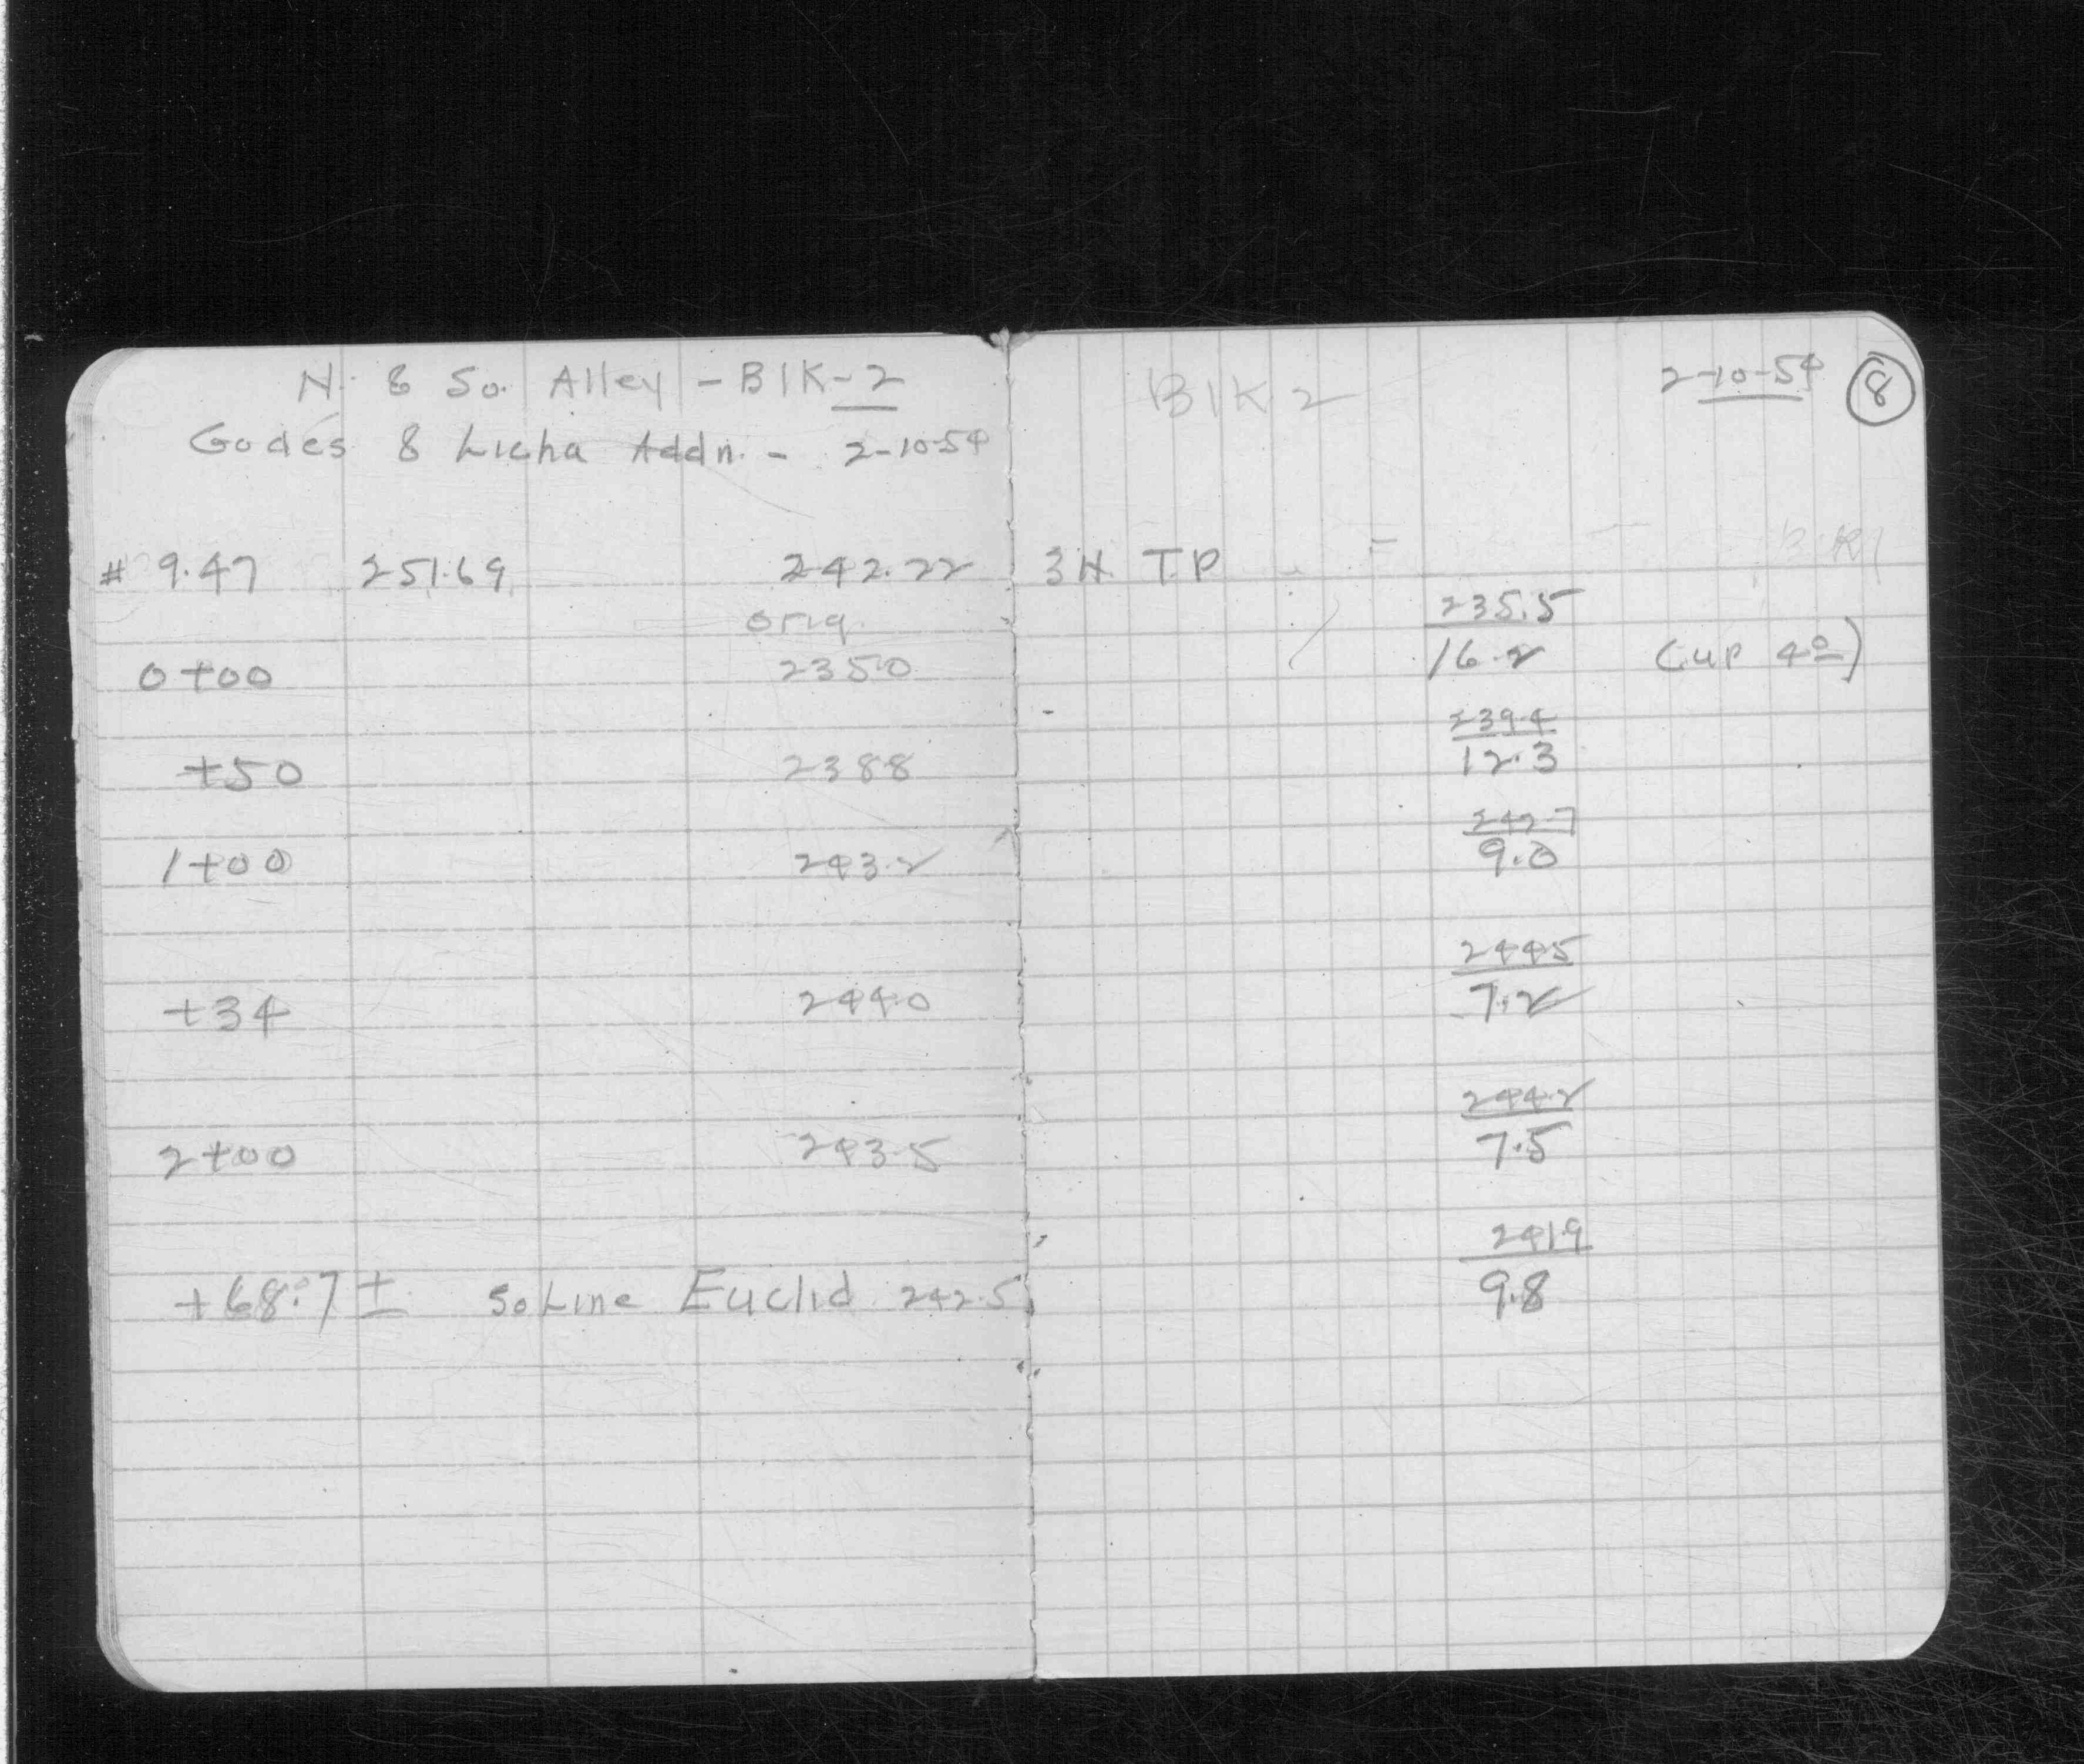 N. & So. Alley - Blk-2
Godes & Licha Addn. - 2-10-54
# 9.47 251.69 242.22
orig.
0+00 235.0
+50 238.8
1+00 243.2
+34 244.0
2+00 243.5
+68.7 ± So Line Euclid 242.5
Blk 2 2-10-54 8
3H TP
235.5
16.2 (up 4º)
239.4
12.3
242.7
9.0
244.5
7.2
244.2
7.5
241.9
9.8